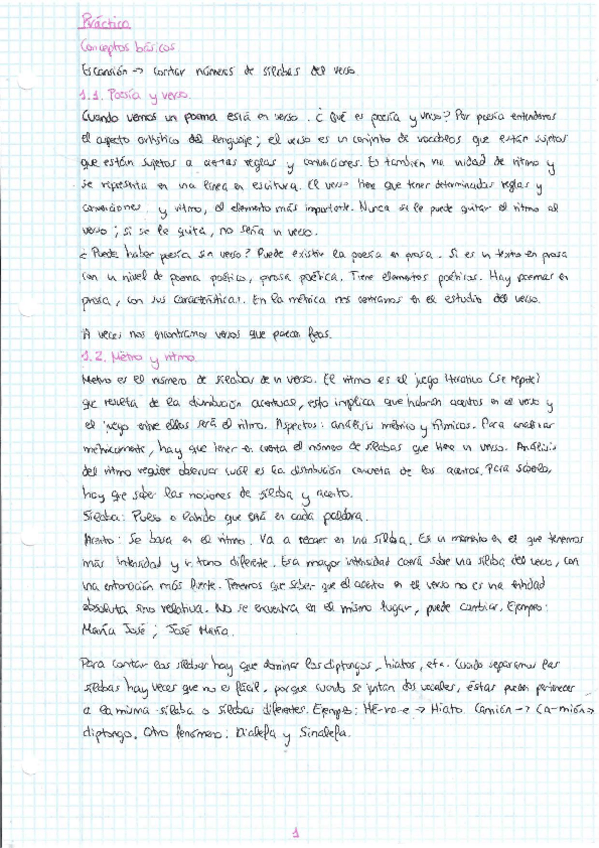 Práctico
Conceptos básicos
Escansión -> contar números de sílabas del verso.
1.1. Poesía y verso.
Cuando vemos un poema está en verso. ¿Qué es poesía y verso? Por poesía entendemos
el aspecto artístico del lenguaje; el verso es un conjunto de vocablos que están sujetos
que están sujetos a ciertas reglas y convenciones. Es también una unidad de ritmo y
se representa en una línea en escritura. El verso tiene que tener determinadas reglas y
convenciones y ritmo, el elemento más importante. Nunca se le puede quitar el ritmo al
verso; si se le quita, no sería un verso.
¿Puede haber poesía sin verso? Puede existir la poesía en prosa. Si es un texto en prosa
con un nivel de poema poético, prosa poética. Tiene elementos poéticos. Hay poemas en
prosa, con sus características. En la métrica nos centramos en el estudio del verso.
A veces nos encontramos versos que parecen feos.
1.2. Metro y ritmo.
Metro es el número de sílabas de un verso. El ritmo es el juego iterativo (se repite)
que resulta de la distribución acentual, esto implica que habrán acentos en el verso y
el juego entre ellos será el ritmo. Aspectos: análisis métrico y rítmicos. Para analizar
métricamente, hay que tener en cuenta el número de sílabas que tiene un verso. Análisis
del ritmo requiere observar cuál es la distribución concreta de los acentos. Para saberlo,
hay que saber las nociones de sílaba y acento.
Sílaba: Pulso o latido que está en cada palabra.
Acento: Se basa en el ritmo. Va a recaer en una sílaba. Es un momento en el que tenemos
más intensidad y un tono diferente. Esa mayor intensidad caerá sobre una sílaba del verso, con
una entonación más fuerte. Tenemos que saber que el acento en el verso no es una entidad
absoluta sino relativa. No se encuentra en el mismo lugar, puede cambiar. Ejemplo:
María José; José María.
Para contar las sílabas hay que dominar los diptongos, hiatos, etc. Cuando separamos las
sílabas hay veces que no es fácil, porque cuando se juntan dos vocales, éstas pueden pertenecer
a la misma sílaba o sílabas diferentes. Ejemplo: Hé-ro-e -> Hiato. Camión -> Ca-mión ->
diptongo. Otro fenómeno: Dialefa y Sinalefa.
1